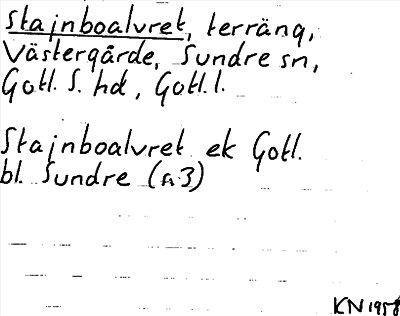 Stajnboalvret, terräng,
Västergårde, Sundre sn,
Gotl. S. hd, Gotl. l.
Stajnboalvret ek Gotl.
bl. Sundre (s. 3)
KN 1958